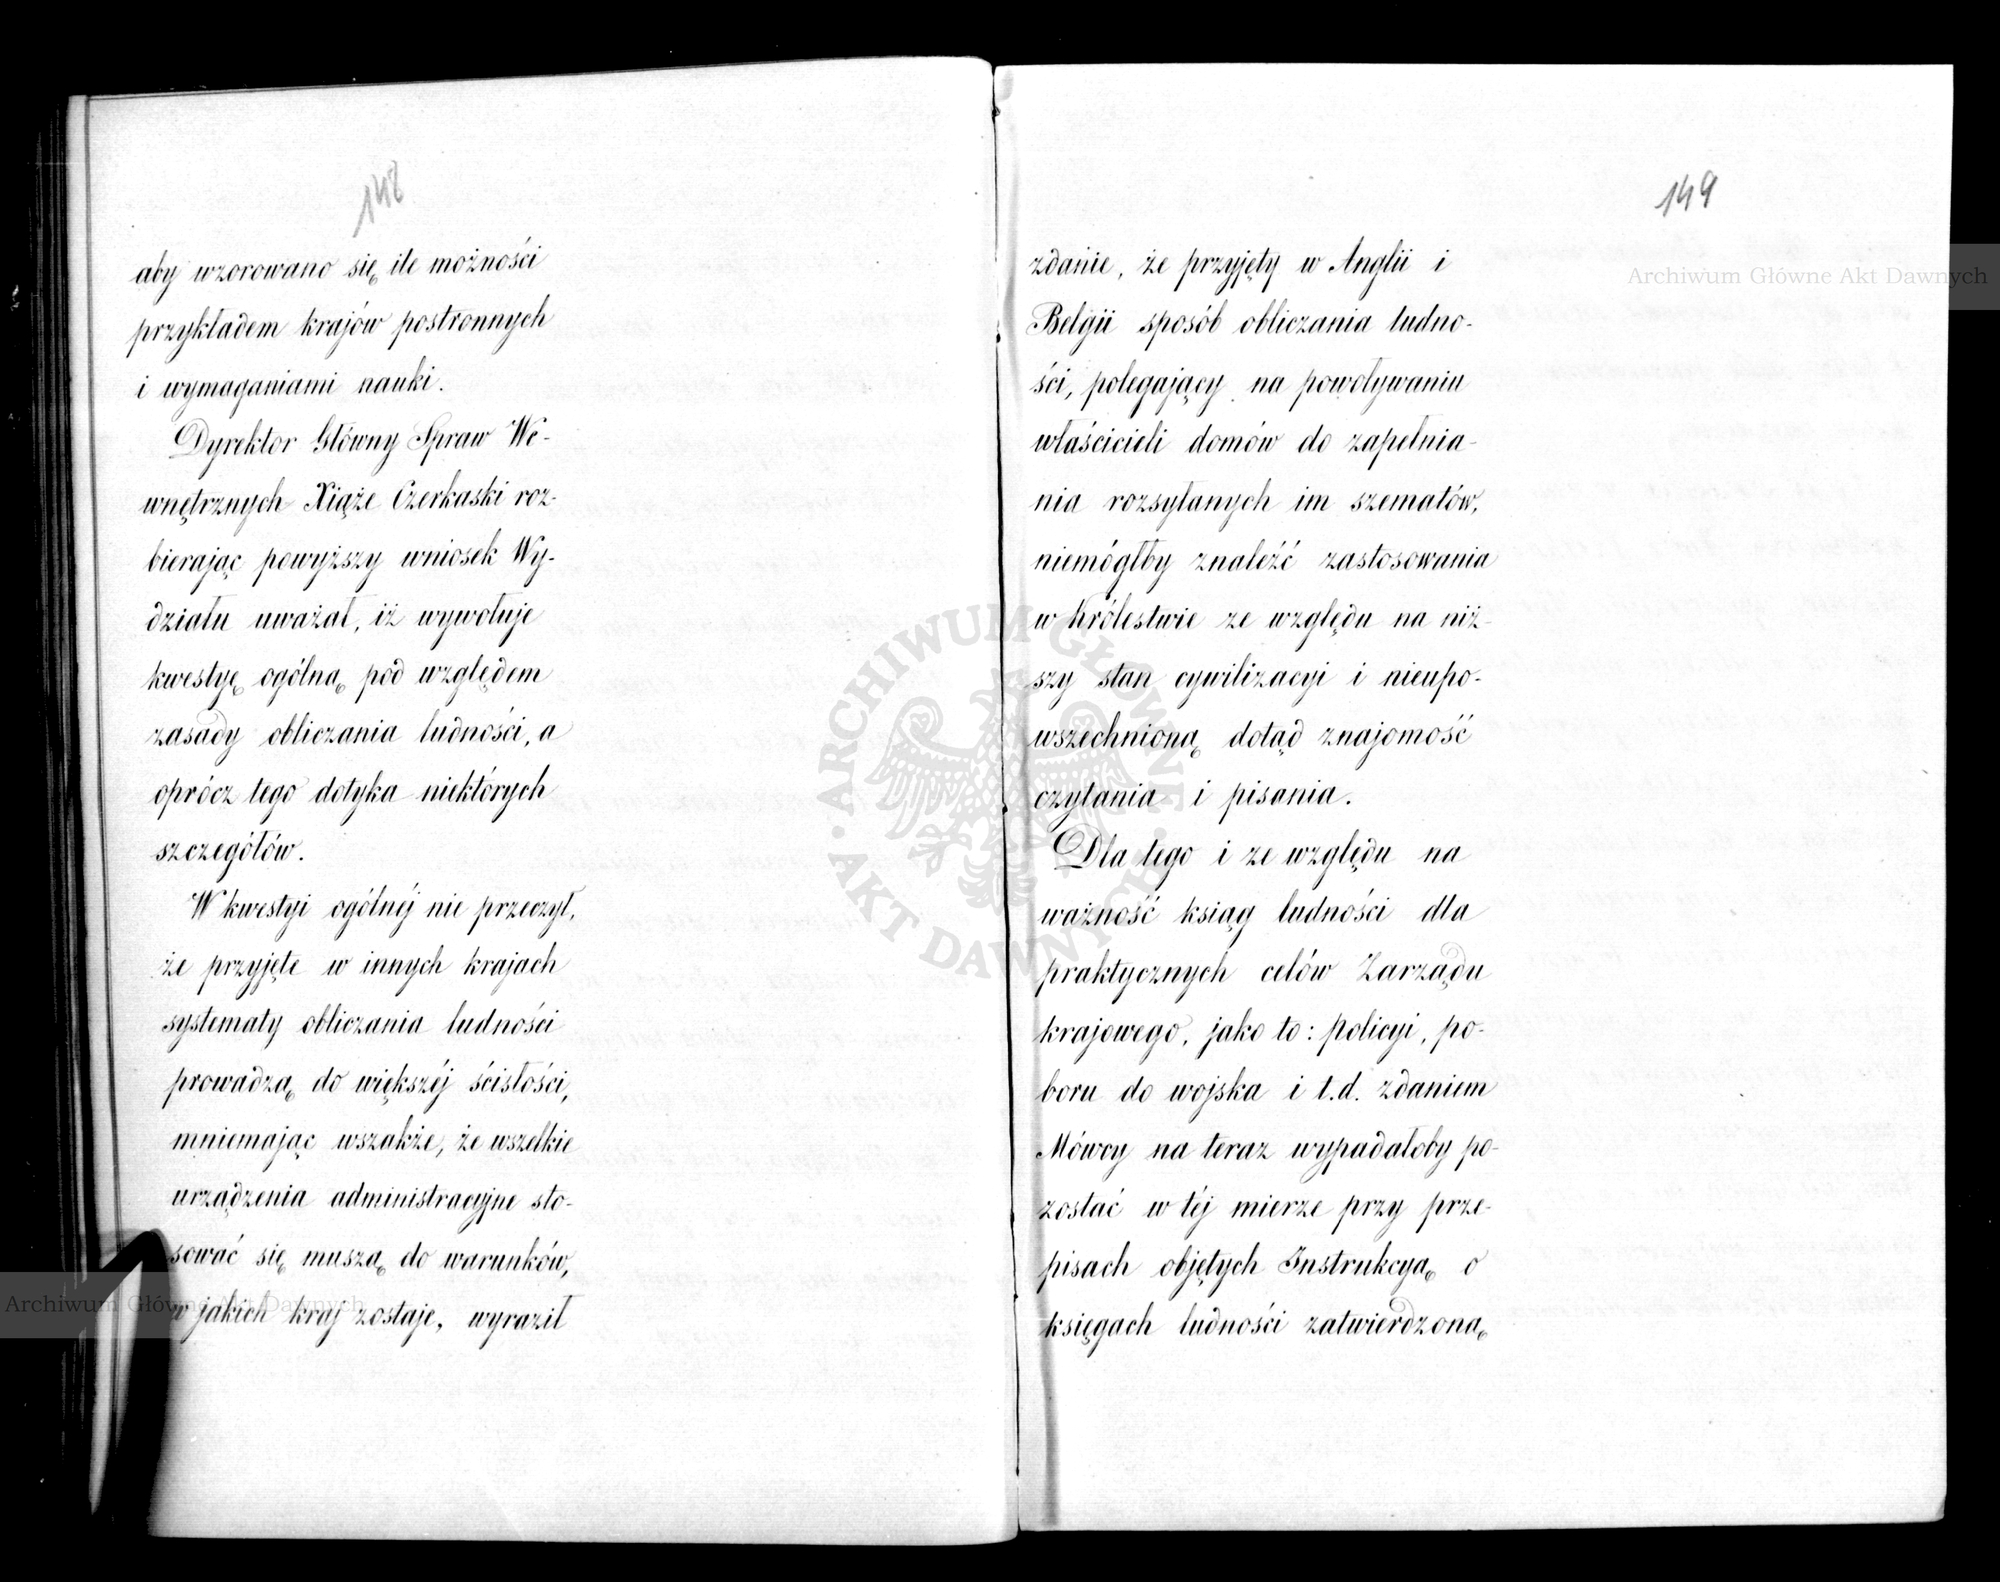 148
aby wzorowano się ile możności
przykładem krajów postronnych
i wymaganiami nauki.
Dyrektor Główny Spraw We-
wnętrznych Xiąże Czerkaski roz-
bierając powyższy wniosek Wy-
działu uważał, iż wywołuje
kwestyę ogólną pod względem
zasady obliczania ludności, a
oprócz tego dotyka niektórych
szczegółów.
W kwestyi ogólnéj nie przeczył,
że przyjęte w innych krajach
systematy obliczania ludności
prowadzą do większéj ścisłości,
mniemając wszakże, że wszelkie
urządzenia administracyjne sto-
sować się muszą do warunków,
w jakich kraj zostaje, wyraził
149
zdanie, że przyjęty w Anglii i
Belgii sposób obliczania ludno-
ści, polegający na powoływaniu
właścicieli domów do zapełnia-
nia rozsyłanych im szematów,
niemógłby znaleźć zastosowania
w Królestwie ze względu na niż-
szy stan cywilizacyi i nieupo-
wszechnioną dotąd znajomość
czytania i pisania.
Dla tego i ze względu na
ważność ksiąg ludności dla
praktycznych celów Zarządu
krajowego, jako to: policyi, po-
boru do wojska i t.d. zdaniem
Mówcy na teraz wypadałoby po-
zostać w téj mierze przy prze-
pisach objętych Instrukcyą o
księgach ludności zatwierdzoną
Archiwum Główne Akt Dawnych
Archiwum Główne Akt Dawnych
ARCHIWUM GŁÓWNE
AKT DAWNYCH